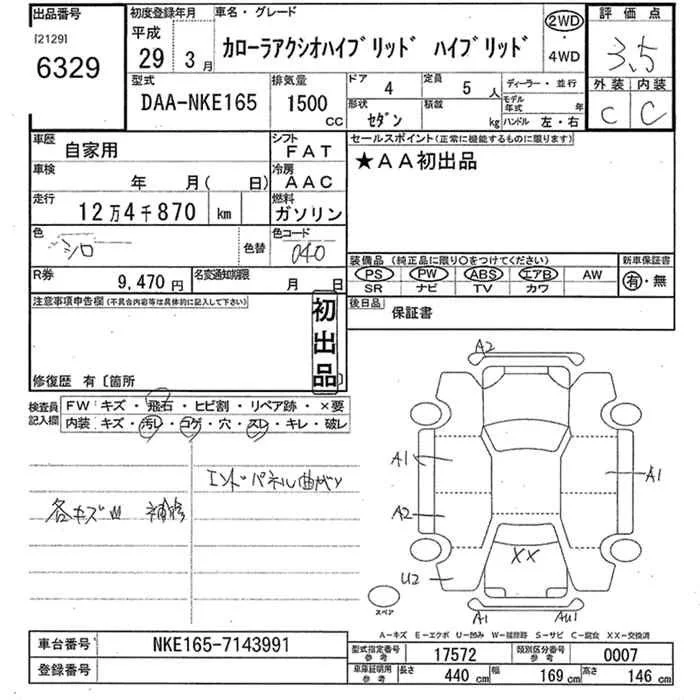 出品番号
[2129]
6329
初度登録年月
平成
29年 3月
車名・グレード
カローラアクシオハイブリッド ハイブリッド
2WD
・
4WD
評価点
3.5
外装 内装
C C
型式
DAA-NKE165
排気量
1500
CC
ドア 4
定員 5 人
形状 セダン
積載 kg
ディーラー・並行
モデル年式 年
ハンドル 左・右
車歴
自家用
シフト
FAT
車検
年 月( 日)
冷房
AAC
走行
12万4千870 km
燃料
ガソリン
色
シロ
色替
色コード
040
R券
9,470円
名変通知期限
月 日
セールスポイント(正常に機能するものに限ります)
★AA初出品
装備品(純正品に限り○をつけてください)
PS PW ABS エアB AW
SR ナビ TV カワ
新車保証書
有・無
後日品
保証書
注意事項申告欄(不具合内容等は具体的に記入して下さい)
初出品
修復歴 有〔箇所 〕
検査員記入欄
FW キズ・飛石・ヒビ割・リペア跡・×要
内装 キズ・汚レ・コゲ・穴・スレ・キレ・破レ
エンドパネル曲がり
各キズ凹 補修
A2
A1
A1
A2
XX
U2
スペア
A1
AU1
A-キズ E-エクボ U-凹み W-補修跡 S-サビ C-腐食 XX-交換済
車台番号
NKE165-7143991
登録番号
型式指定番号 参考
17572
類別区分番号 参考
0007
車庫証明用 参考
長さ 440 cm
幅 169 cm
高さ 146 cm